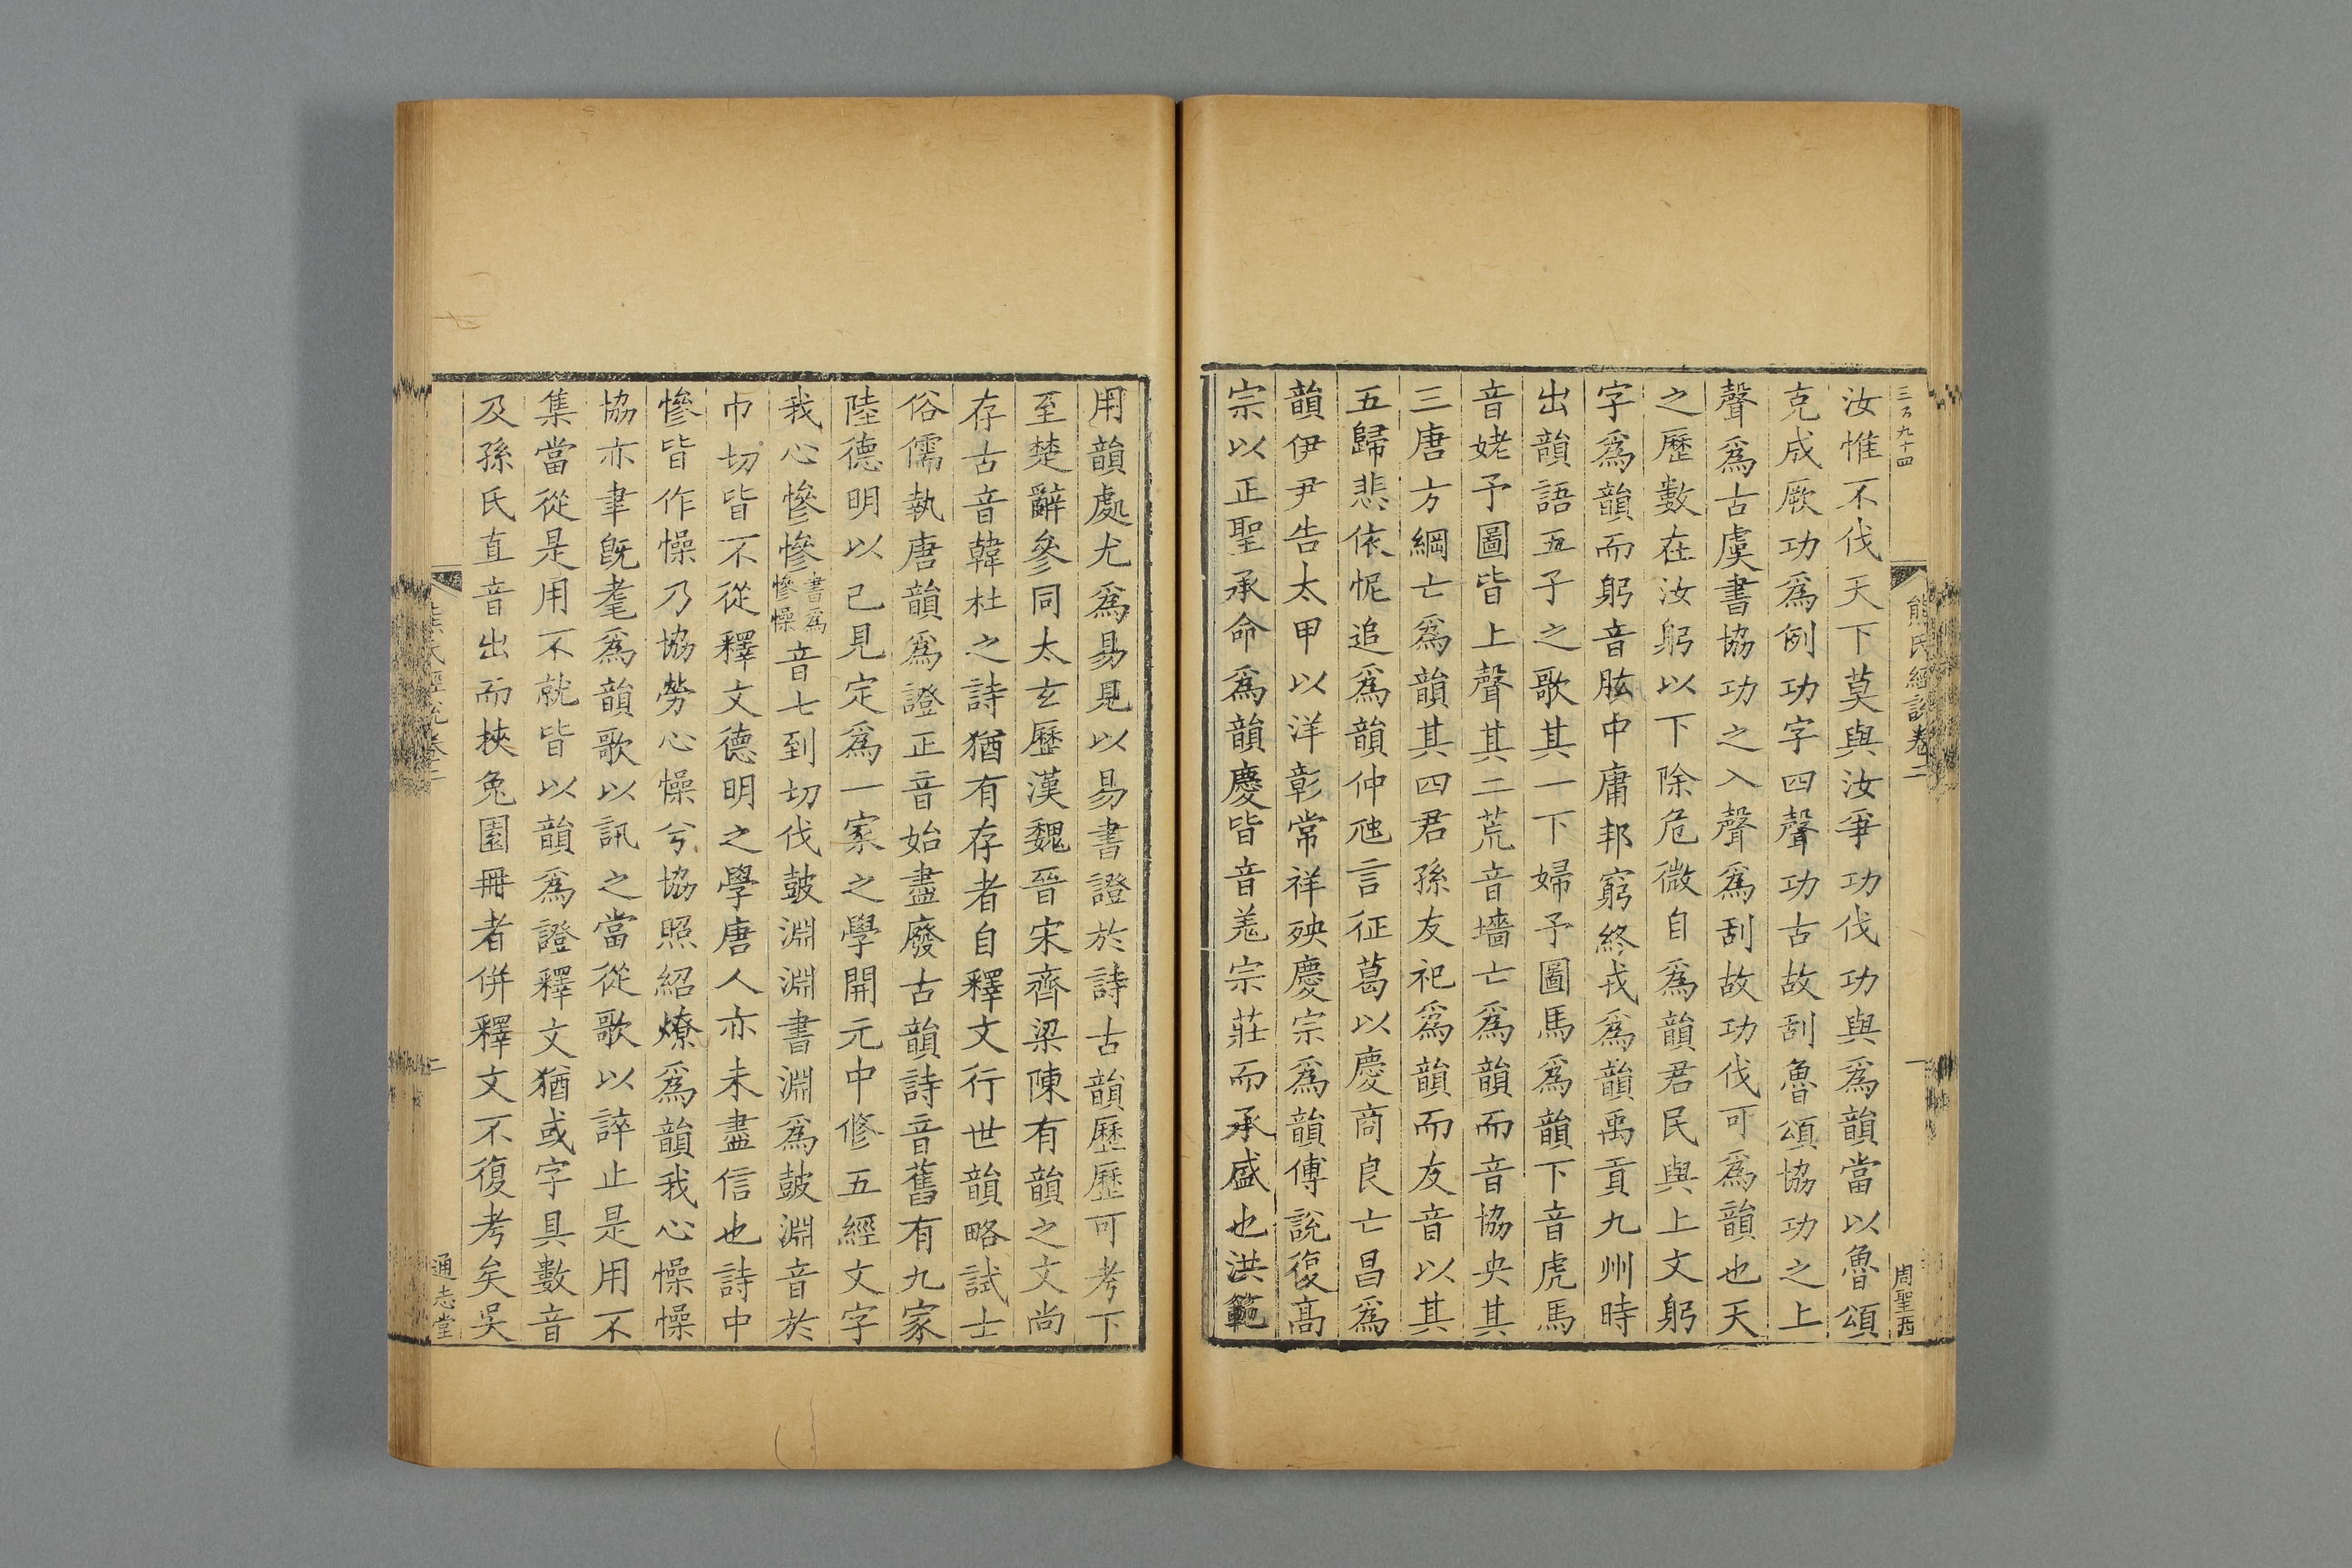 三百九十四
熊氏經說卷二
一
周聖西
汝惟不伐天下莫與汝爭功伐功與爲韻當以魯頌
克成厥功爲例功字四聲功古故刮魯頌協功之上
聲爲古虞書協功之入聲爲刮故功伐可爲韻也天
之歷數在汝躬以下除危微自爲韻君民與上文躬
字爲韻而躬音肱中庸邦窮終戎爲韻禹貢九州時
出韻語五子之歌其一下婦予圖馬爲韻下音虎馬
音姥予圖皆上聲其二荒音墻亡爲韻而音協央其
三唐方綱亡爲韻其四君孫友祀爲韻而友音以其
五歸悲依怩追爲韻仲虺言征葛以慶商良亡昌爲
韻伊尹告太甲以洋彰常祥殃慶宗爲韻傅說復高
宗以正聖承命爲韻慶皆音羗宗莊而承盛也洪範
用韻處尤爲易見以易書證於詩古韻歷歷可考下
至楚辭參同太玄歷漢魏晉宋齊梁陳有韻之文尚
存古音韓杜之詩猶有存者自釋文行世韻略試士
俗儒執唐韻爲證正音始盡廢古韻詩音舊有九家
陸德明以己見定爲一家之學開元中修五經文字
我心慘慘書爲慘懆音七到切伐鼓淵淵書淵爲鼓淵音於
巾切皆不從釋文德明之學唐人亦未盡信也詩中
慘皆作懆乃協勞心懆兮協照紹燎爲韻我心懆懆
協亦聿既耄爲韻歌以訊之當從歌以誶止是用不
集當從是用不就皆以韻爲證釋文猶或字具數音
及孫氏直音出而挾兔園冊者併釋文不復考矣吳
二
通志堂